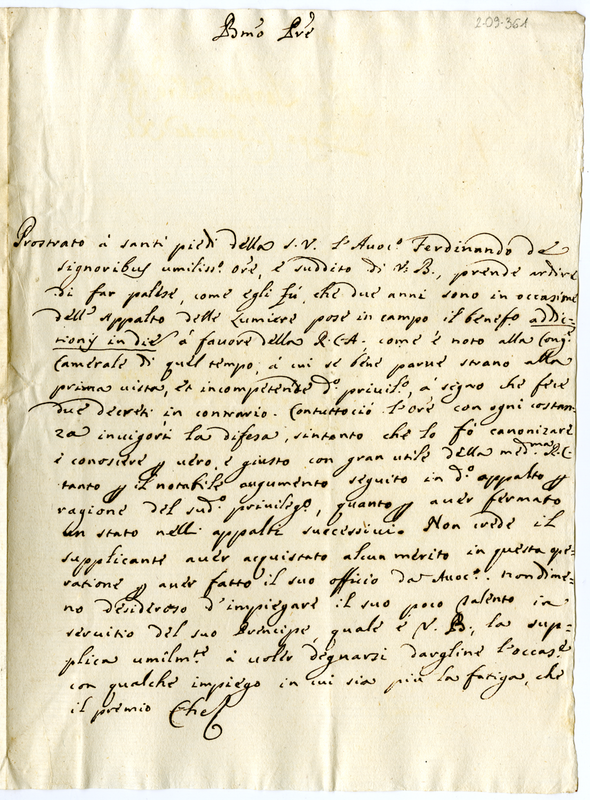 2-09-361
B.mo Pr̃e
Prostrato à santi piedi della S. V. l'Auoc.o Ferdinando de
Signoribus umiliss.o Or̃e, e suddito di V. B., prende ardire
di far palese, come egli fú, che due anni sono in occasione
dell'Appalto delle Lumiere pose in campo il benef.o addic-
tionis in diem à fauore della R. C. A. come è noto alla Cong.e
Camerale di quel tempo, à cui se bene parue strano alla
prima uista, et incompetente d.o priuil.o, à segno che fece
due decreti in contrario. Contuttociò l'Or̃e con ogni costan-
za inuigorì la difesa, sintanto che lo fò canonizare
e conoscere p uero, e giusto con gran utile della med.ma R. C.
tanto p il notabile augumento seguito in d.o appalto p
ragione del sud.o priuileg.o, quanto p auer fermato
un stato nelli appalti successiui. Non crede il
supplicante auer acquistato alcun merito in questa ope-
ratione p auer fatto il suo officio da Auoc.o. nondime-
no desideroso d'impiegare il suo poco talento in
seruitio del suo Principe, quale è V. B., la sup-
plica umilm.te à uoler degnarsi dargline l'occas.e
con qualche impiego in cui sia più la fatiga, che
il premio Che